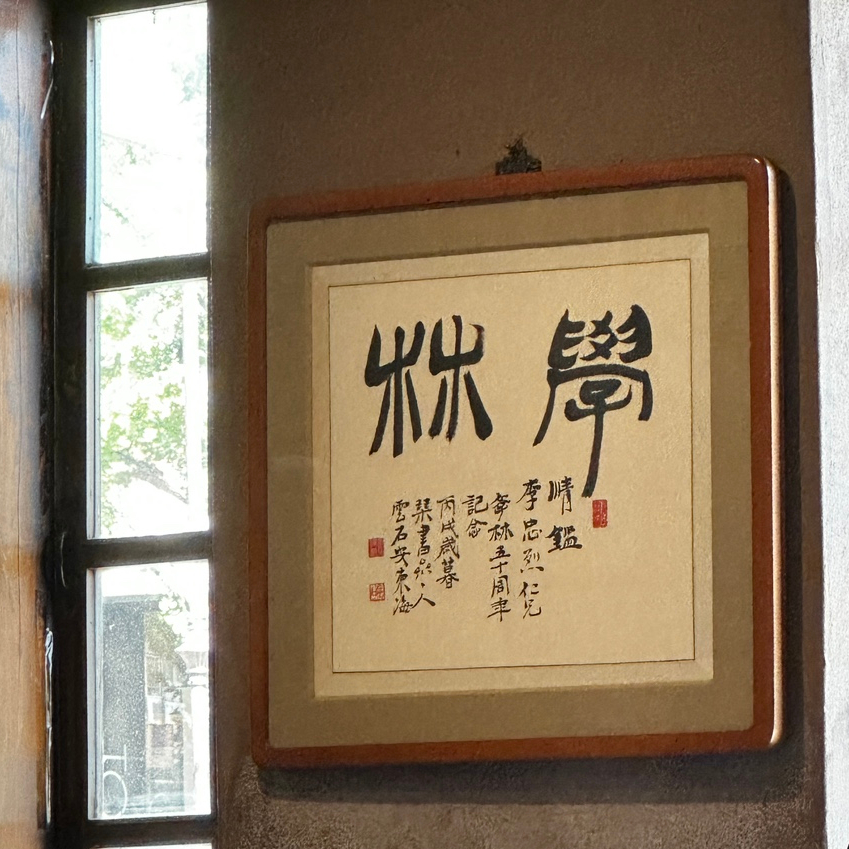 學林
情鑑
李忠烈仁兄
學林五十周年
記念
丙戌歲暮
琴書
人
雲石安東海